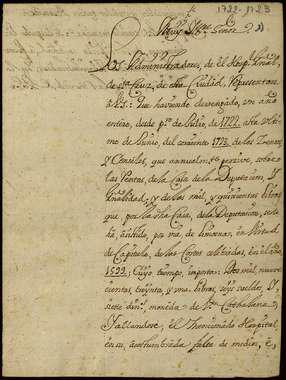 1722-1723
Muy Ille Señor
Los Administradores, de el Hospl Genal
de Sta Creu, de esta Ciudad, Representan
a V.S: Que haviendo devengado, en año
entero, desde pro de Julio, de 1722. asta ulti-
mo de Junio, del corriente 1723. de los
y Censales, que annualmte percive, sobre
las Rentas, de la Casa de la Deputacion, y
Genalidad; y de las mil, y quinientas libras
que, por la dha Casa, de la Deputacion, este
de, por via, de limosna, en virtud
de Capitulo, de las Cortes celebradas, en el año
1599. Cuyo tiempo, importa: Dos mil, nueve
cientas, treynta, y una libras, seys sueldos, y
siete dins, moneda de Cathaluna
Y allandose, el Menciondo Hospital,
en su acostumbrada falta de medios, è,